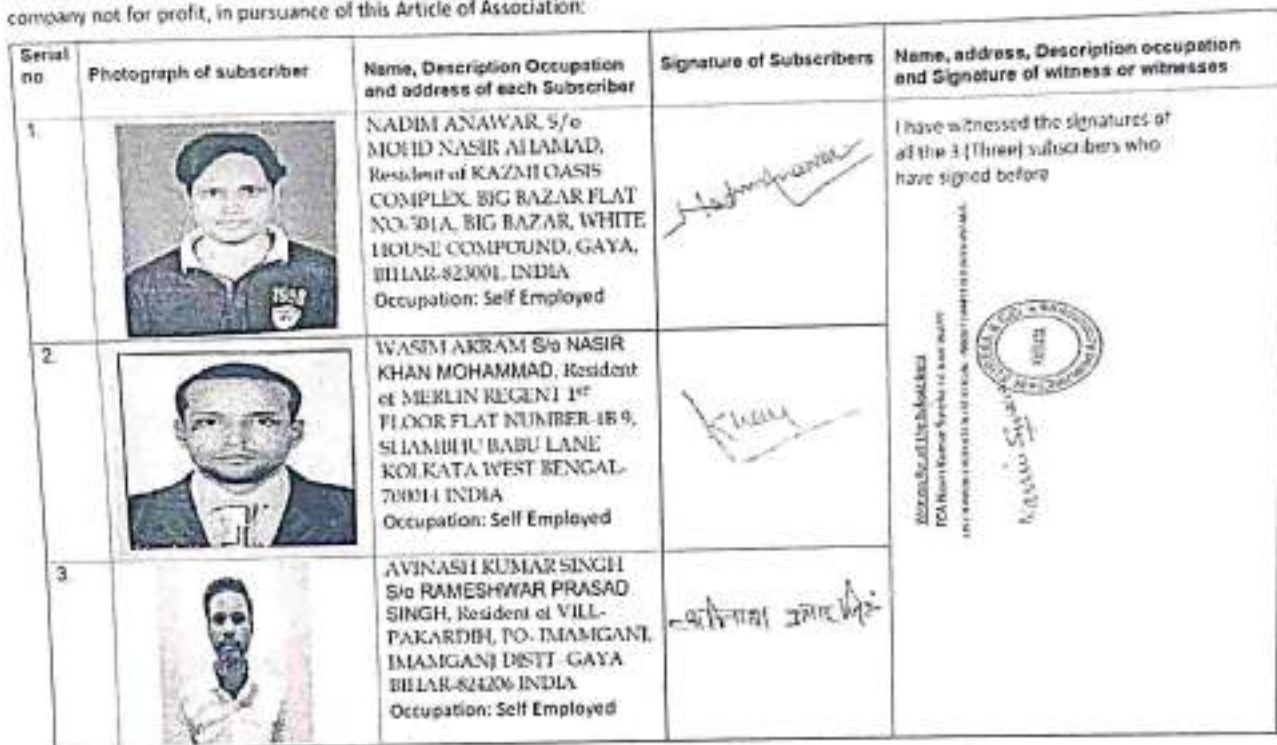 company not for profit, in pursuance of this Article of Association:
Serial no
Photograph of subscriber
Name, Description Occupation
and address of each Subscriber
Signature of Subscribers
Name, address, Description occupation
and Signature of witness or witnesses
1.
NADIM ANAWAR, S/o
MOHD NASIR AHAMAD,
Resident of KAZMI OASIS
COMPLEX, BIG BAZAR FLAT
NO-301A, BIG BAZAR, WHITE
HOUSE COMPOUND, GAYA,
BIHAR-823001, INDIA
Occupation: Self Employed
Nadim Anawar
I have witnessed the signatures of
all the 3 (Three) subscribers who
have signed before
2.
WASIM AKRAM S/o NASIR
KHAN MOHAMMAD, Resident
of MERLIN REGENT 1ST
FLOOR FLAT NUMBER-1B 9,
SHAMBHU BABU LANE
KOLKATA WEST BENGAL-
700014 INDIA
Occupation: Self Employed
3.
AVINASH KUMAR SINGH
S/o RAMESHWAR PRASAD
SINGH, Resident of VILL-
PAKARDIH, PO- IMAMGANJ,
IMAMGANJ DISTT -GAYA
BIHAR-824206 INDIA
Occupation: Self Employed
अविनाश कुमार सिंह